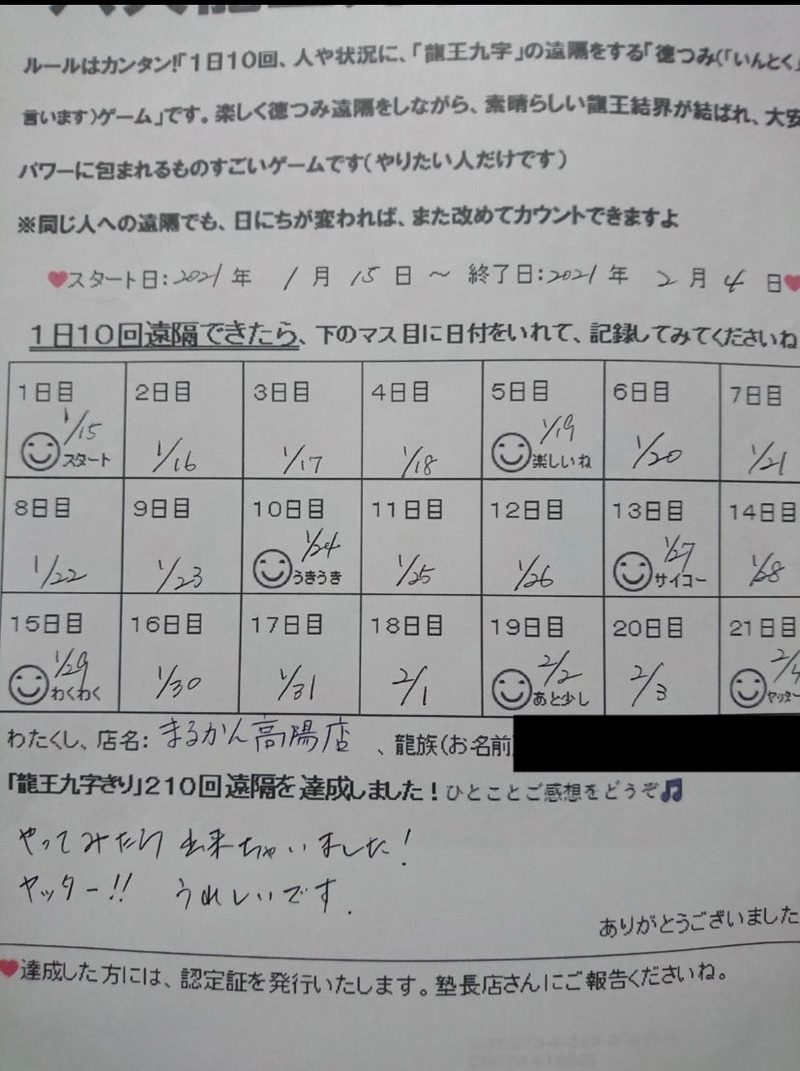 ルールはカンタン!「1日10回、人や状況に、「龍王九字」の遠隔をする「徳つみ(「いんとく」
言います)ゲーム」です。楽しく徳つみ遠隔をしながら、素晴らしい龍王結界が結ばれ、大安
パワーに包まれるものすごいゲームです(やりたい人だけです)
※同じ人への遠隔でも、日にちが変われば、また改めてカウントできますよ
♥スタート日:2021年 1月 15日 ~ 終了日:2021年 2月 4日♥
1日10回遠隔できたら、下のマス目に日付をいれて、記録してみてくださいね
1日目 2日目 3日目 4日目 5日目 6日目 7日目
1/15 スタート 1/16 1/17 1/18 1/19 楽しいね 1/20 1/21
8日目 9日目 10日目 11日目 12日目 13日目 14日目
1/22 1/23 1/24 うきうき 1/25 1/26 1/27 サイコー 1/28
15日目 16日目 17日目 18日目 19日目 20日目 21日目
1/29 わくわく 1/30 1/31 2/1 2/2 あと少し 2/3 2/4 ヤッター
わたくし、店名: まるかん高陽店 、龍族(お名前)
「龍王九字きり」210回遠隔を達成しました!ひとことご感想をどうぞ🎵
やってみたら 出来ちゃいました!
ヤッター!! うれしいです.
ありがとうございました
♥達成した方には、認定証を発行いたします。塾長店さんにご報告くださいね。